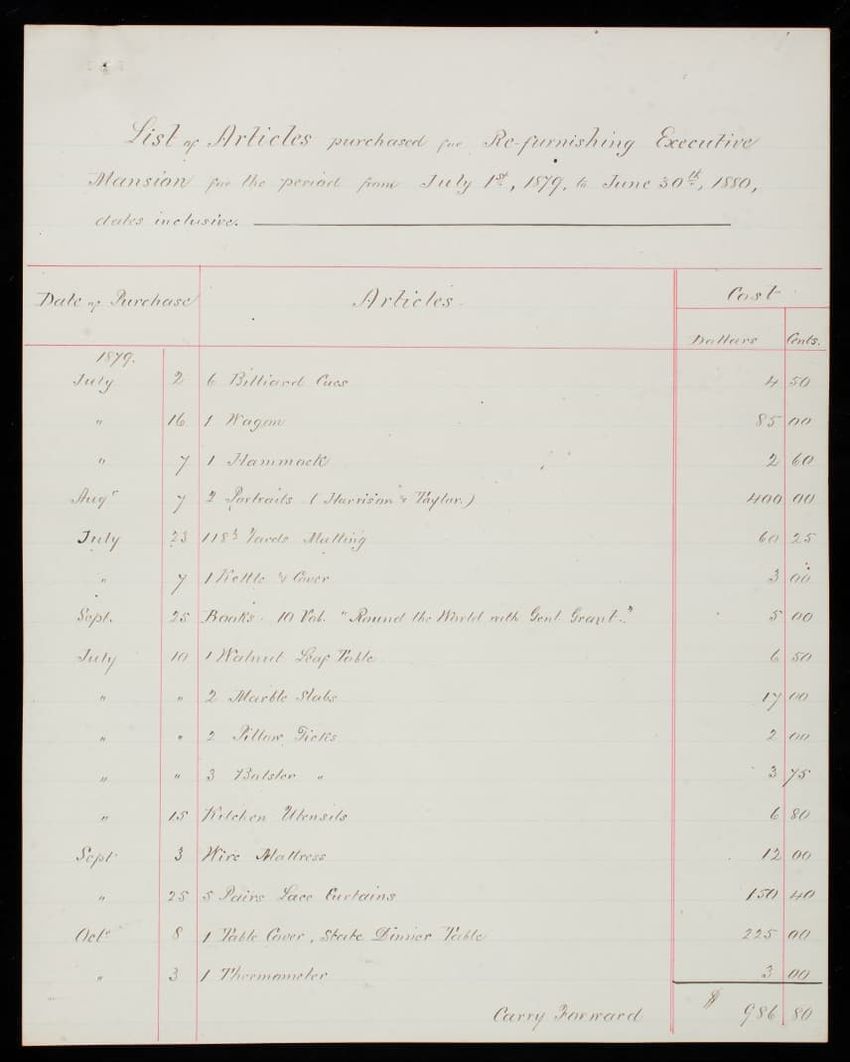 List of Articles purchased for Re-furnishing Executive
Mansion for the period from July 1st, 1879, to June 30th, 1880,
dates inclusive.
Date of Purchase Articles Cost
Dollars Cents.
1879.
July 2 6 Billiard Cues 4 50
" 16 1 Wagon 85 00
" 7 1 Hammock 2 60
Augt 7 2 Portraits (Harrison & Taylor.) 400 00
July 23 118½ Yards Matting 60 25
" 7 1 Kettle & Cover 3 00
Sept. 25 Books. 10 Vol. "Round the World with Genl. Grant." 5 00
July 10 1 Walnut Leaf Table 6 50
" " 2 Marble Slabs 17 00
" " 2 Pillow Ticks 2 00
" " 3 Bolster " 3 75
" 15 Kitchen Utensils 6 80
Sept. 3 Wire Mattress 12 00
" 25 5 Pairs Lace Curtains 150 40
Oct. 8 1 Table Cover, State Dinner Table 225 00
" 3 1 Thermometer 3 00
Carry Forward $ 986 80